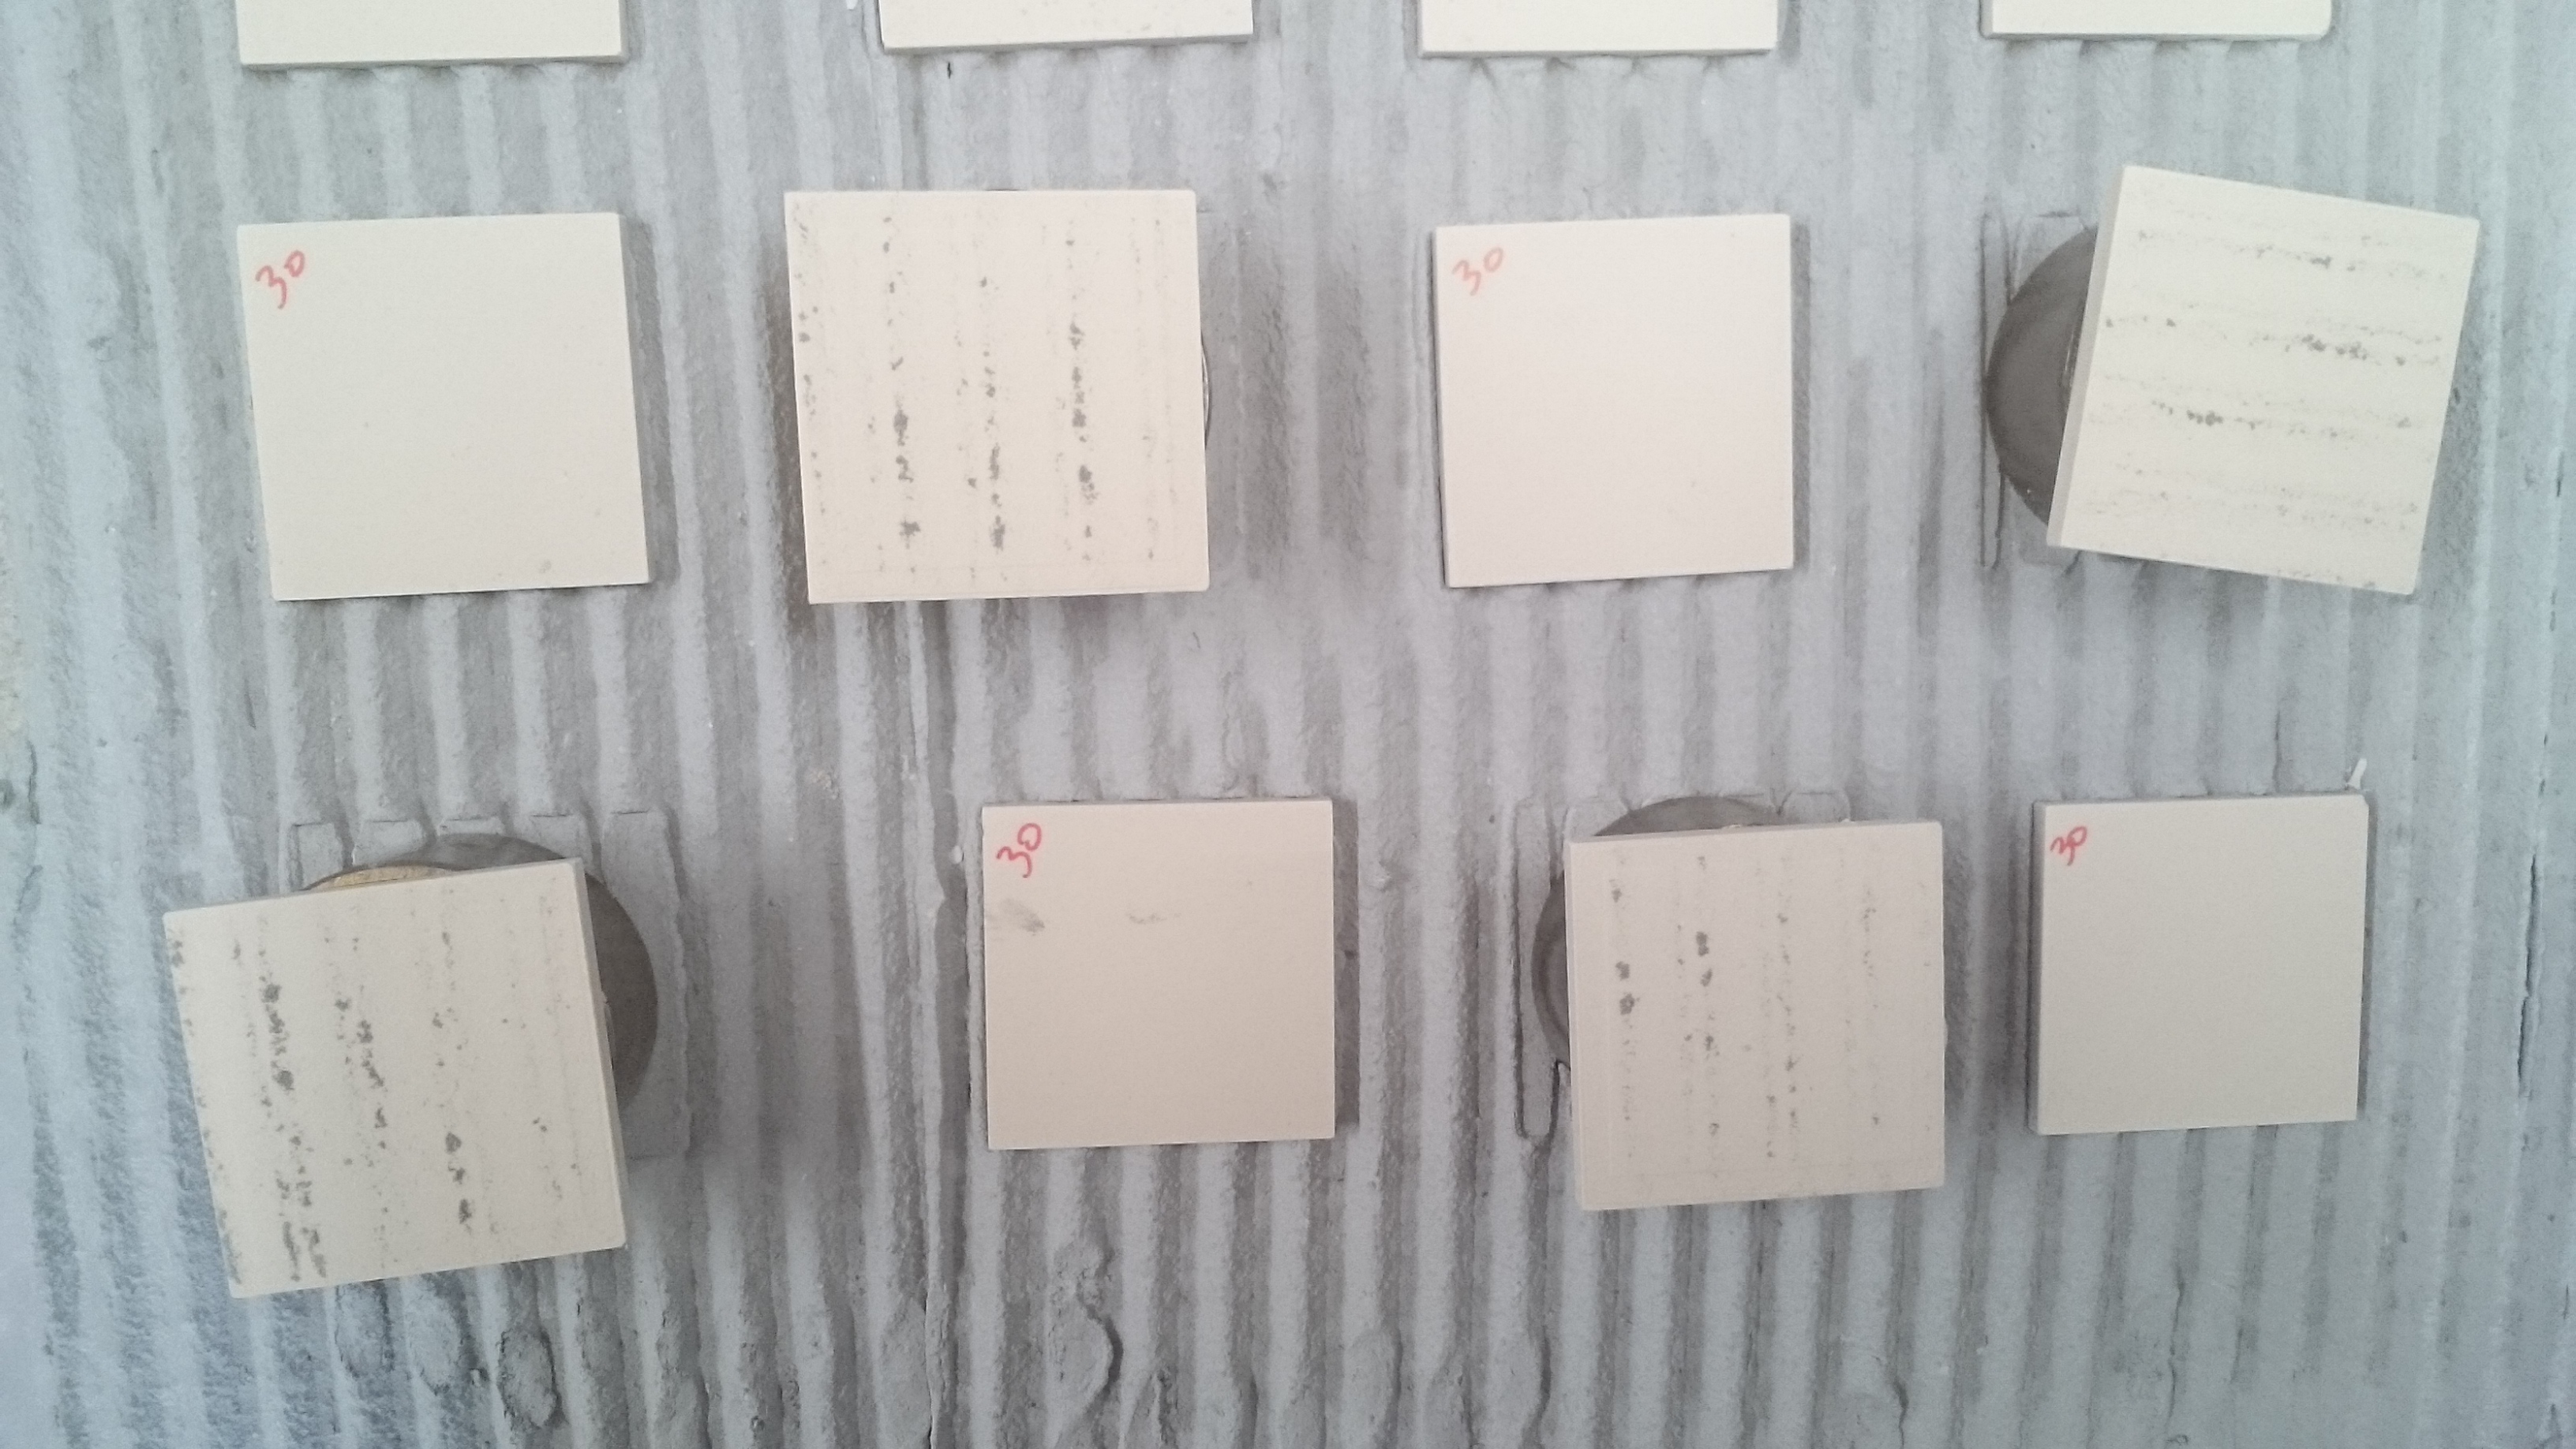 30
30
30
30